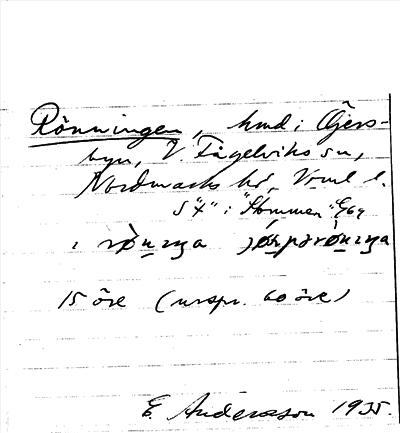 Rönningen, hmd i Öjers-
byn, V. Fågelviks sn,
Nordmarks hd, Vrml l.
S "X" i "Hommen" Eg64
i rø̀nıŋa jǿspərø̀nıŋa
15 öre (urspr. 60 öre)
E. Andersson 1935.